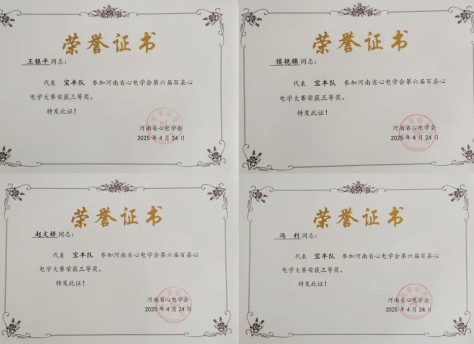 荣誉证书
王银平同志：
代表 宝丰队 参加河南省心电学会第六届百县心
电学大赛荣获三等奖。
特发此证！
河南省心电学会
2025 年 4 月 24 日
荣誉证书
侯艳锦同志：
代表 宝丰队 参加河南省心电学会第六届百县心
电学大赛荣获三等奖。
特发此证！
河南省心电学会
2025 年 4 月 24 日
荣誉证书
赵文娇同志：
代表 宝丰队 参加河南省心电学会第六届百县心
电学大赛荣获三等奖。
特发此证！
河南省心电学会
2025 年 4 月 24 日
荣誉证书
冯 利同志：
代表 宝丰队 参加河南省心电学会第六届百县心
电学大赛荣获三等奖。
特发此证！
河南省心电学会
2025 年 4 月 26 日